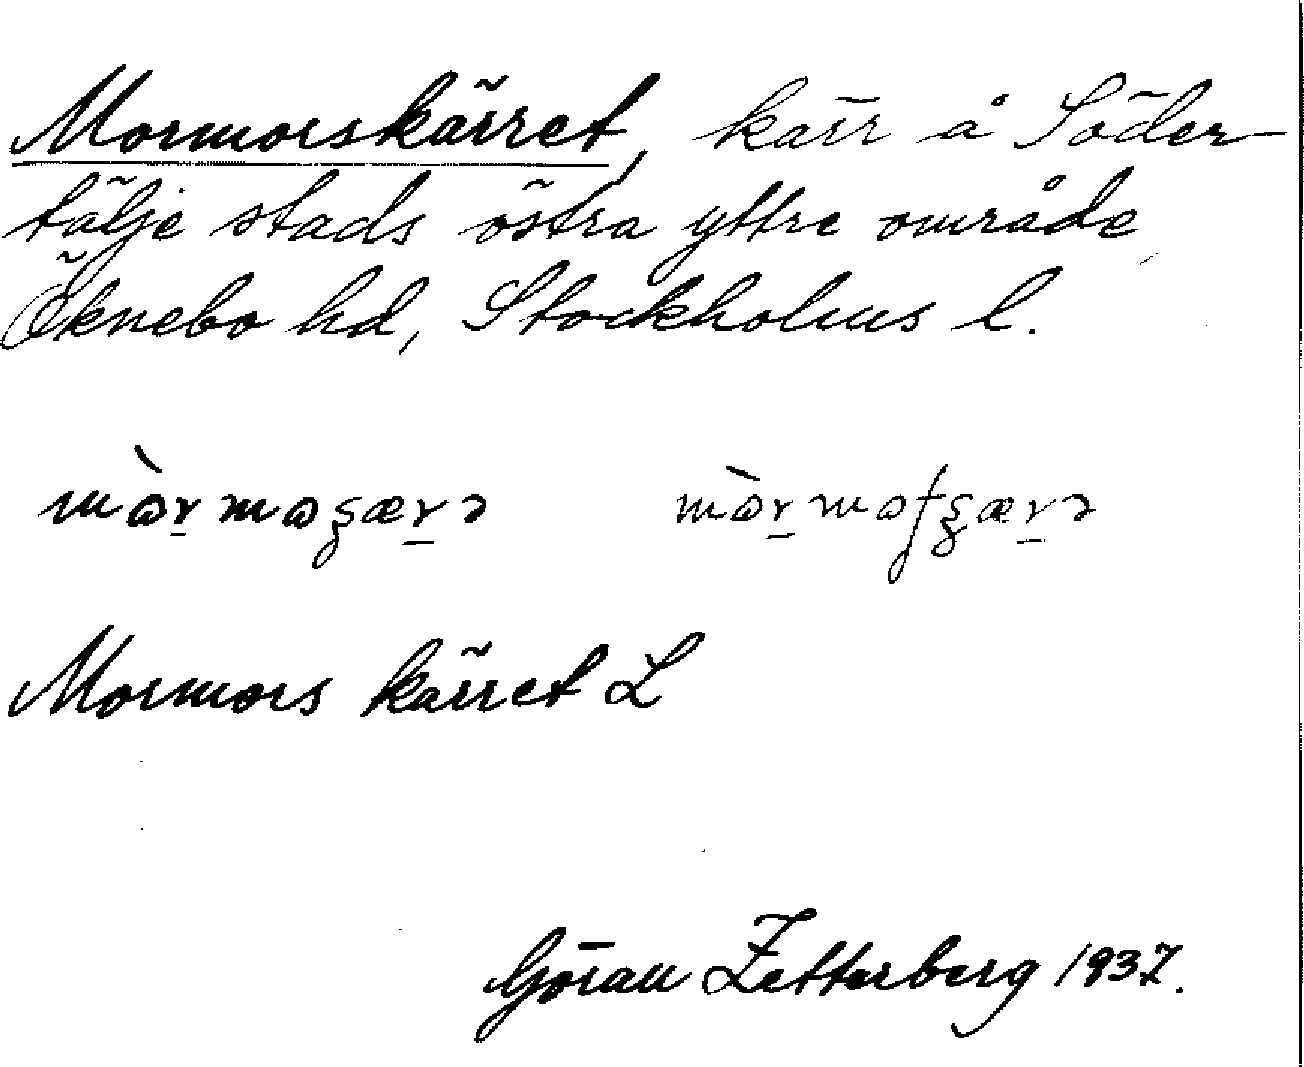 Mormorskärret, kärr å Söder-
tälje stads östra yttre område,
Öknebo hd, Stockholms l.
Mormors kärret L
Göran Zetterberg 1937.